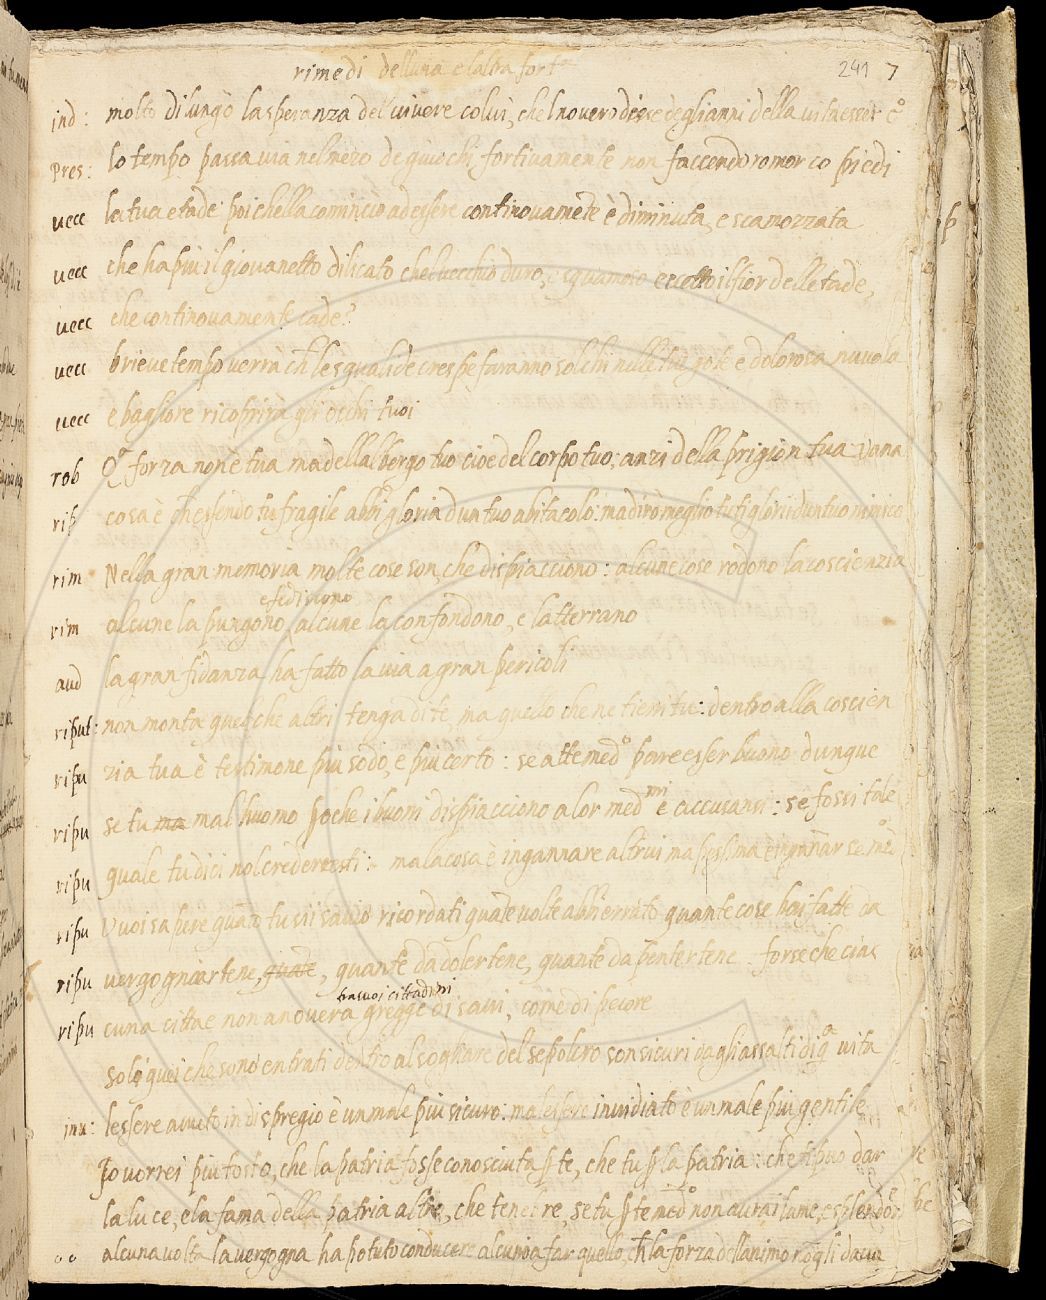 rimedi delluna e laltra fort
241 7
ind: molto dilungò la speranza del vivere colui, chel novero disse deglianni della vita esser
pres: lo tempo passa via nel mezo de giuochi fortivamente non faccendo romor co piedi
vecc la tua etade poi chella comincio ad essere continovamete è diminuta, e scamozzata
vecc che ha più il giovanetto dilicato chel vecchio duro, e squamoso eccetto il fior delletade,
vecc che continovamente cade?
vecc brieve tempo verrà ch le squalide crespe faranno solchi nelle tue gote e dolorosa nuvola
vecc e bagliore ricoprirà gli occhi tuoi
rob Qa forza non è tua ma dellalbergo tuo cioe del corpo tuo; anzi della prigion tua: vana
rip cosa è chessendo tu fragile abbi gloria dun tuo abitacolo: ma dirò meglio tu ti glorii dun tuo nimico
rim Nella gran memoria molte cose son, che dispiacciono: alcune cose rodono la coscienzia
e fediscono
rim alcune la pungono, alcune la confondono, e latterrano
aud la gran fidanza ha fatto la via a gran pericoli
riput: non monta quel che altri tenga di te, ma quello che ne tieni tu: dentro alla coscien
ripu zia tua è testimone più sodo, e più certo: se atte medo pare esser buono dunque
ripu se tu ma mal huomo poche i buoni dispiacciono a lor medmi e accusansi: se fossi tale
ripu quale tu dici nol crederresti: mala cosa è ingannare altrui ma pessima
ripu Vuoi sapere quato tu sii savio ricordati quate volte abbi errato quante cose hai fatte da
ripu vergogniartene, quate, quante da dolertene, quante da pentertene. forse che cias
tra suoi cittadini
ripu cuna cittae non anovera gregge di savi, come di pecore
Solo quei che sono entrati dentro al sogliare del sepolcro son sicuri dagli assalti di qa vita
inu: lessere avuto in dispregio è un male più sicuro: ma lessere invidiato è un male più gentile
Io vorrei più tosto, che la patria fosse conosciuta p te, che tu p la patria: che ti può dar
la luce, e la fama della patria altro, che tenebre, se tu p te medo non avrai lume, e splendor
alcuna volta la vergogna ha potuto conducere alcuno a far quello, ch la forza dellanimo